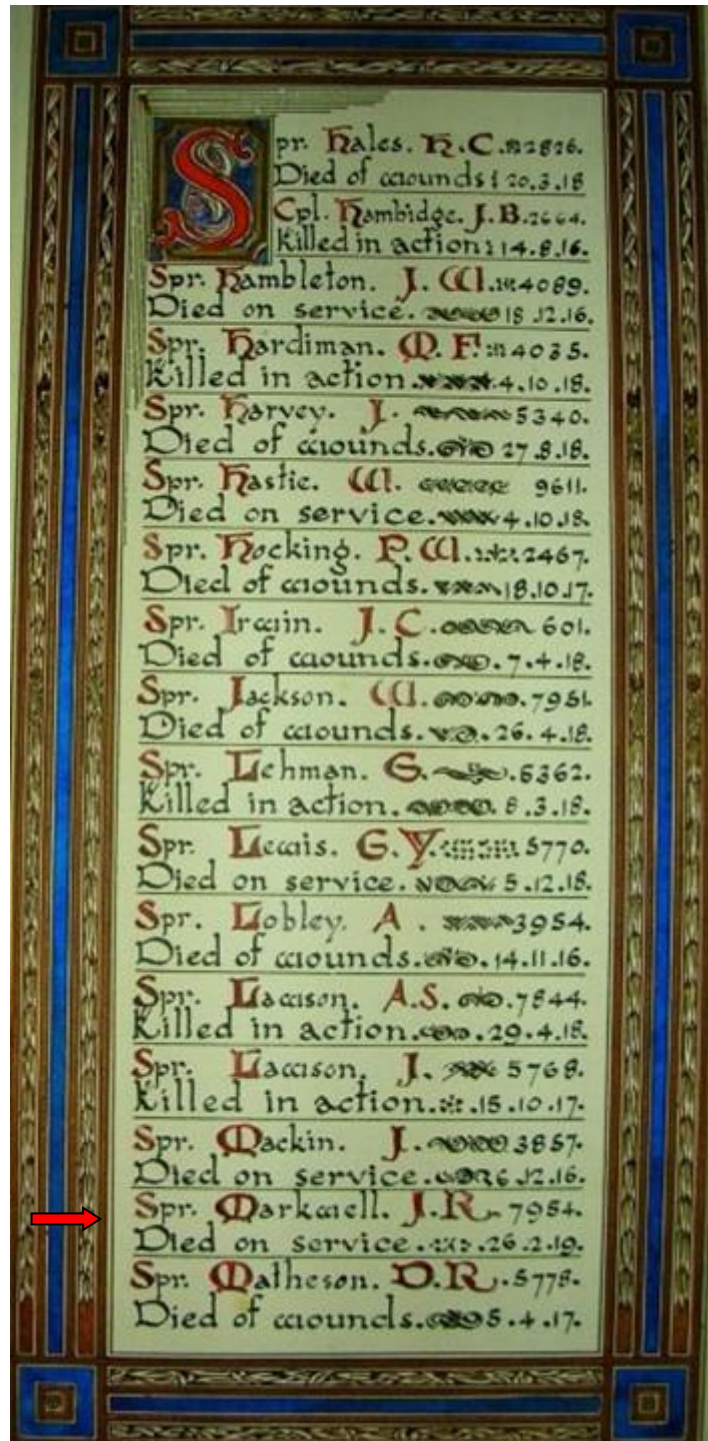 Spr. Hales. H. C. 2826.
Died of wounds: 20.3.18
Cpl. Hambidge. J. B. 2664.
Killed in action: 14.8.16.
Spr. Hambleton. J. W. 4089.
Died on service. 18.12.16.
Spr. Hardiman. M. F. 4035.
Killed in action. 4.10.18.
Spr. Harvey. J. 5340.
Died of wounds. 27.8.18.
Spr. Hastie. W. 9611.
Died on service. 4.10.18.
Spr. Hocking. P. W. 2467.
Died of wounds. 18.10.17.
Spr. Irwin. J. C. 601.
Died of wounds. 7.4.18.
Spr. Jackson. W. 7951.
Died of wounds. 26.4.18.
Spr. Lehman. G. 5362.
Killed in action. 8.3.18.
Spr. Lewis. G. Y. 5770.
Died on service. 5.12.18.
Spr. Lobley. A. 3954.
Died of wounds. 14.11.16.
Spr. Lawson. A.S. 7844.
Killed in action. 29.4.18.
Spr. Lawson. J. 5768.
Killed in action. 15.10.17.
Spr. Mackin. J. 3857.
Died on service. 6.12.16.
Spr. Markwell. J.R. 7954.
Died on service. 26.2.19.
Spr. Matheson. D.R. 5778.
Died of wounds. 5.4.17.